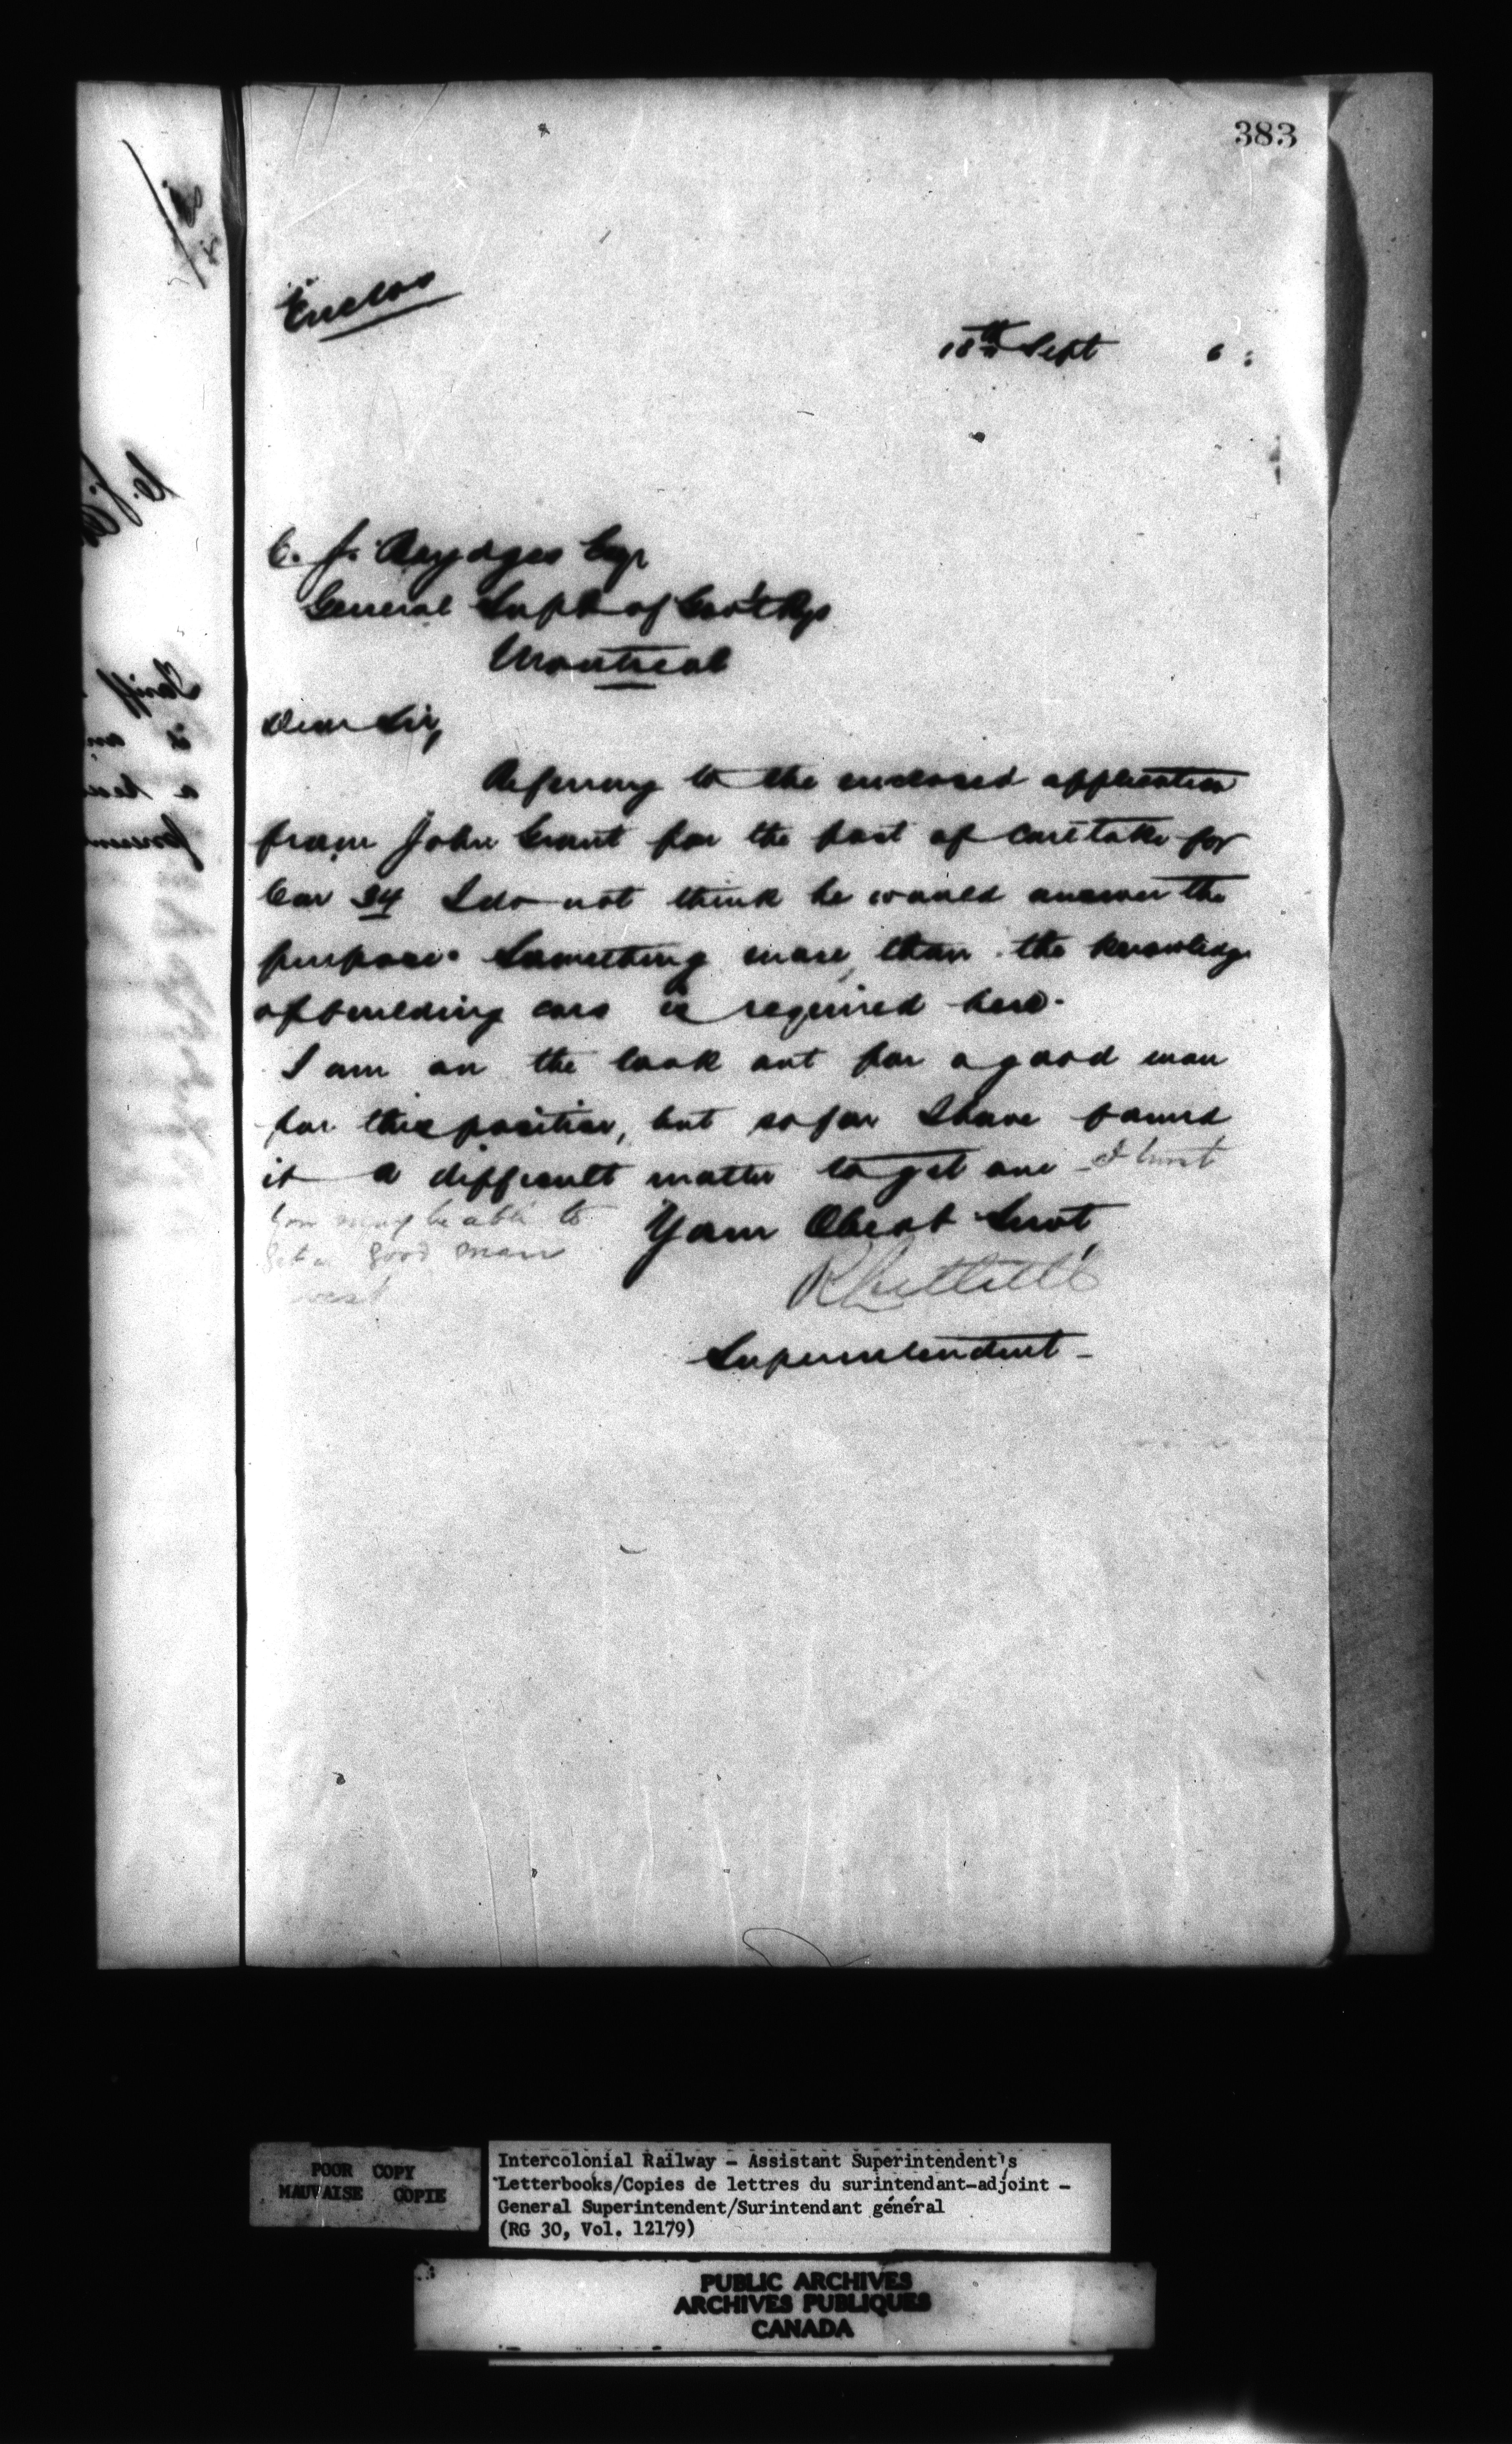 383
Enclos
18th Sept 6:
C. J. Brydges Esqr
General Supt of Gov't Rys
Montreal
Dear Sir,
Referring to the enclosed application
from John Grant for the post of caretaker for
Car 34 I do not think he would answer the
purpose. Something more than the knowledge
of building cars is required here.
I am on the look out for a good man
for this position, but so far I have found
it a difficult matter to get one - I trust
you may be able to
get a good man
west
Your Obedt Servt
Superintendent -
POOR COPY
MAUVAISE COPIE
Intercolonial Railway - Assistant Superintendent's
Letterbooks/Copies de lettres du surintendant-adjoint -
General Superintendent/Surintendant général
(RG 30, Vol. 12179)
PUBLIC ARCHIVES
ARCHIVES PUBLIQUES
CANADA